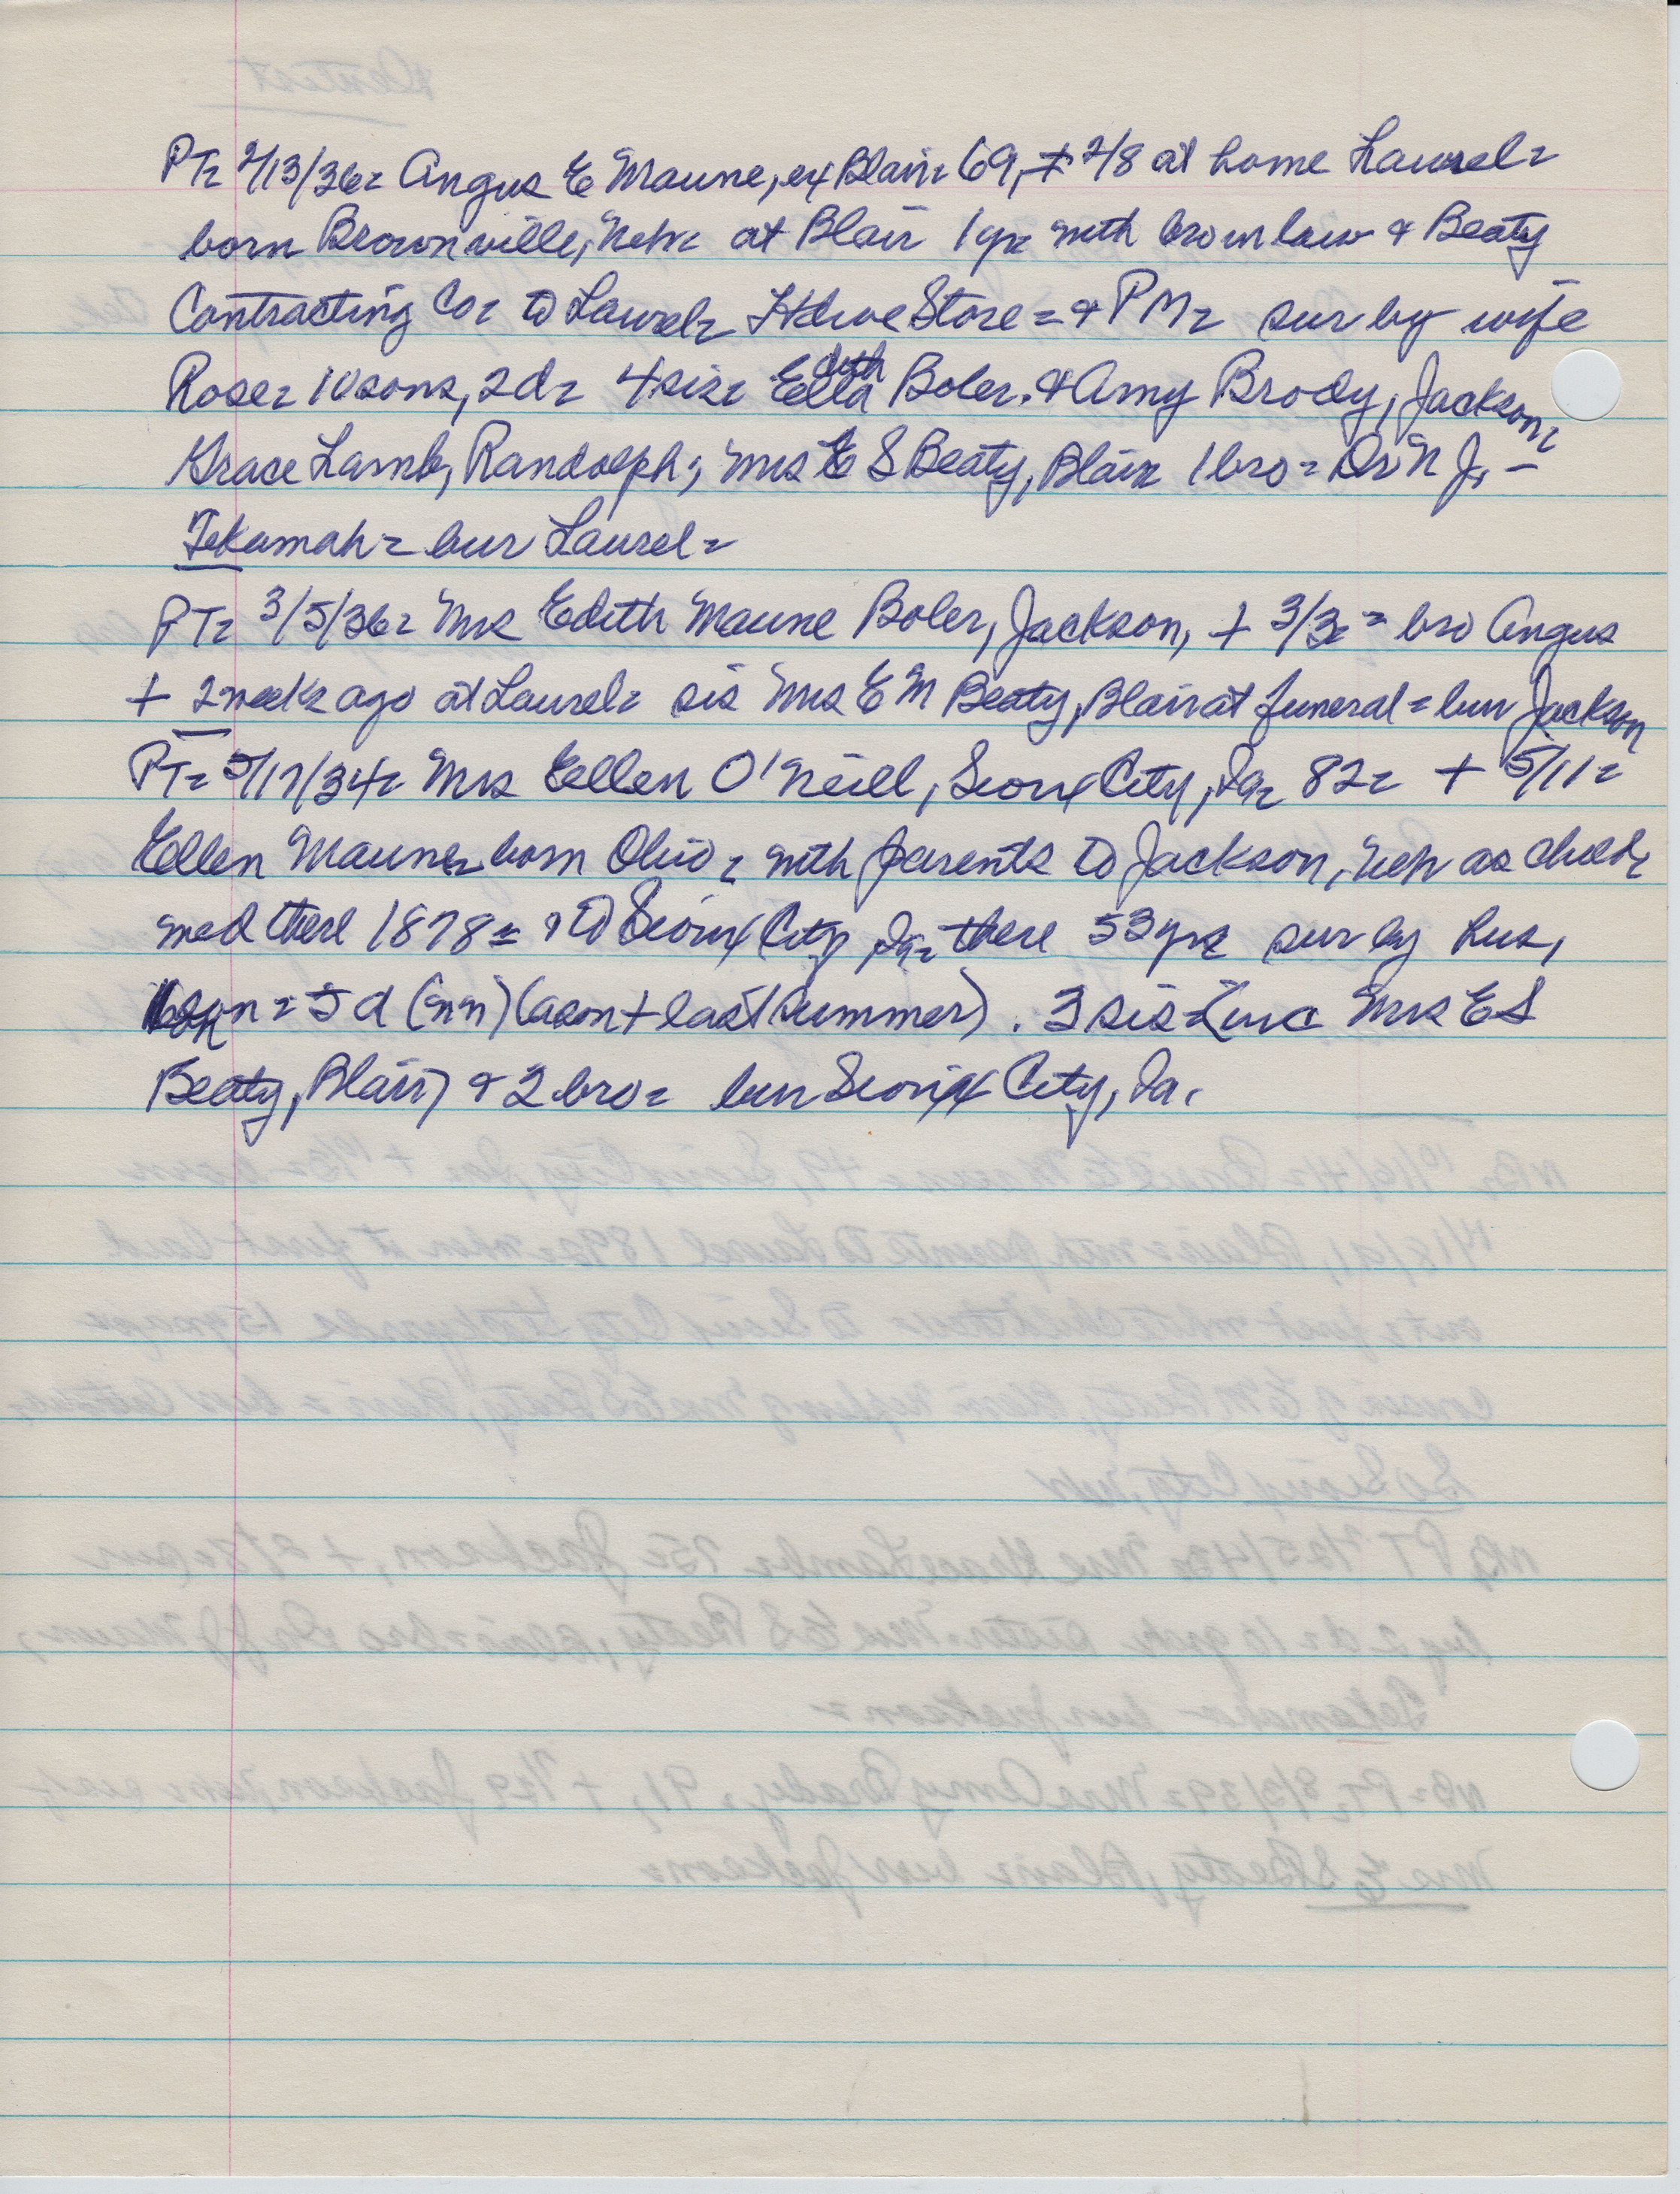 PT= 2/13/36= Angus E Maune, ex Blair= 69, + 2/8 at home Laurel=
born Brownville, Neb= at Blair 1 yr= with bro in law & Beaty
Contracting Co= to Laurel= Hdwe Store= & PM= sur by wife
Rose= 10 sons, 2 d= 4 sis= Edith Boler, & Amy Brody, Jackson=
Grace Lamb, Randolph; Mrs E S Beaty, Blair 1 bro= Dr N J, -
Tekamah= bur Laurel=
PT= 3/5/36= Mrs Edith Maune Boler, Jackson, + 3/3= bro Angus
+ 2 weeks ago at Laurel= sis Mrs E M Beaty, Blair at funeral= bur Jackson
PT= 5/17/34= Mrs Ellen O'Neill, Sioux City, Ia= 82= + 5/11=
Ellen Maune= born Ohio= with parents to Jackson, Neb as child,
med there 1878= & to Sioux City Ia= there 53 yrs sur by hus,
son= 5 d (nn) (a son + last summer). 3 sis (inc Mrs E S
Beaty, Blair) & 2 bro= bur Sioux City, Ia.